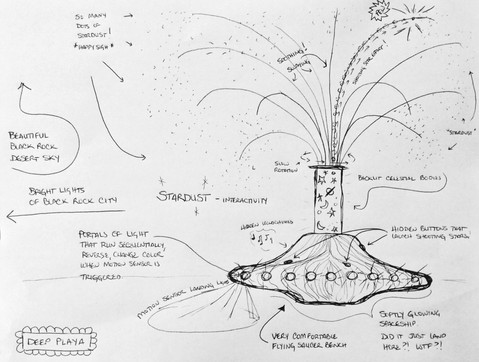 SO MANY
DOTS OF
STARDUST!
*HAPPY SIGH*
SOOTHING!
SHOOTING STAR EFFECT!
BEAUTIFUL
BLACK ROCK
DESERT SKY
"STARDUST"
SLOW
ROTATION
BACKLIT CELESTIAL BODIES
BRIGHT LIGHTS
OF BLACK ROCK CITY
STARDUST - INTERACTIVITY
PORTALS OF LIGHT
THAT RUN SEQUENTIALLY,
REVERSE, CHANGE COLOR
WHEN MOTION SENSOR IS
TRIGGERED
HIDDEN
HIDDEN BUTTONS THAT
LAUNCH SHOOTING STARS
MOTION SENSOR LANDING
SOFTLY GLOWING
SPACESHIP
DID IT JUST LAND
HERE?! WTF?!
VERY COMFORTABLE
FLYING SAUCER BENCH
DEEP PLAYA